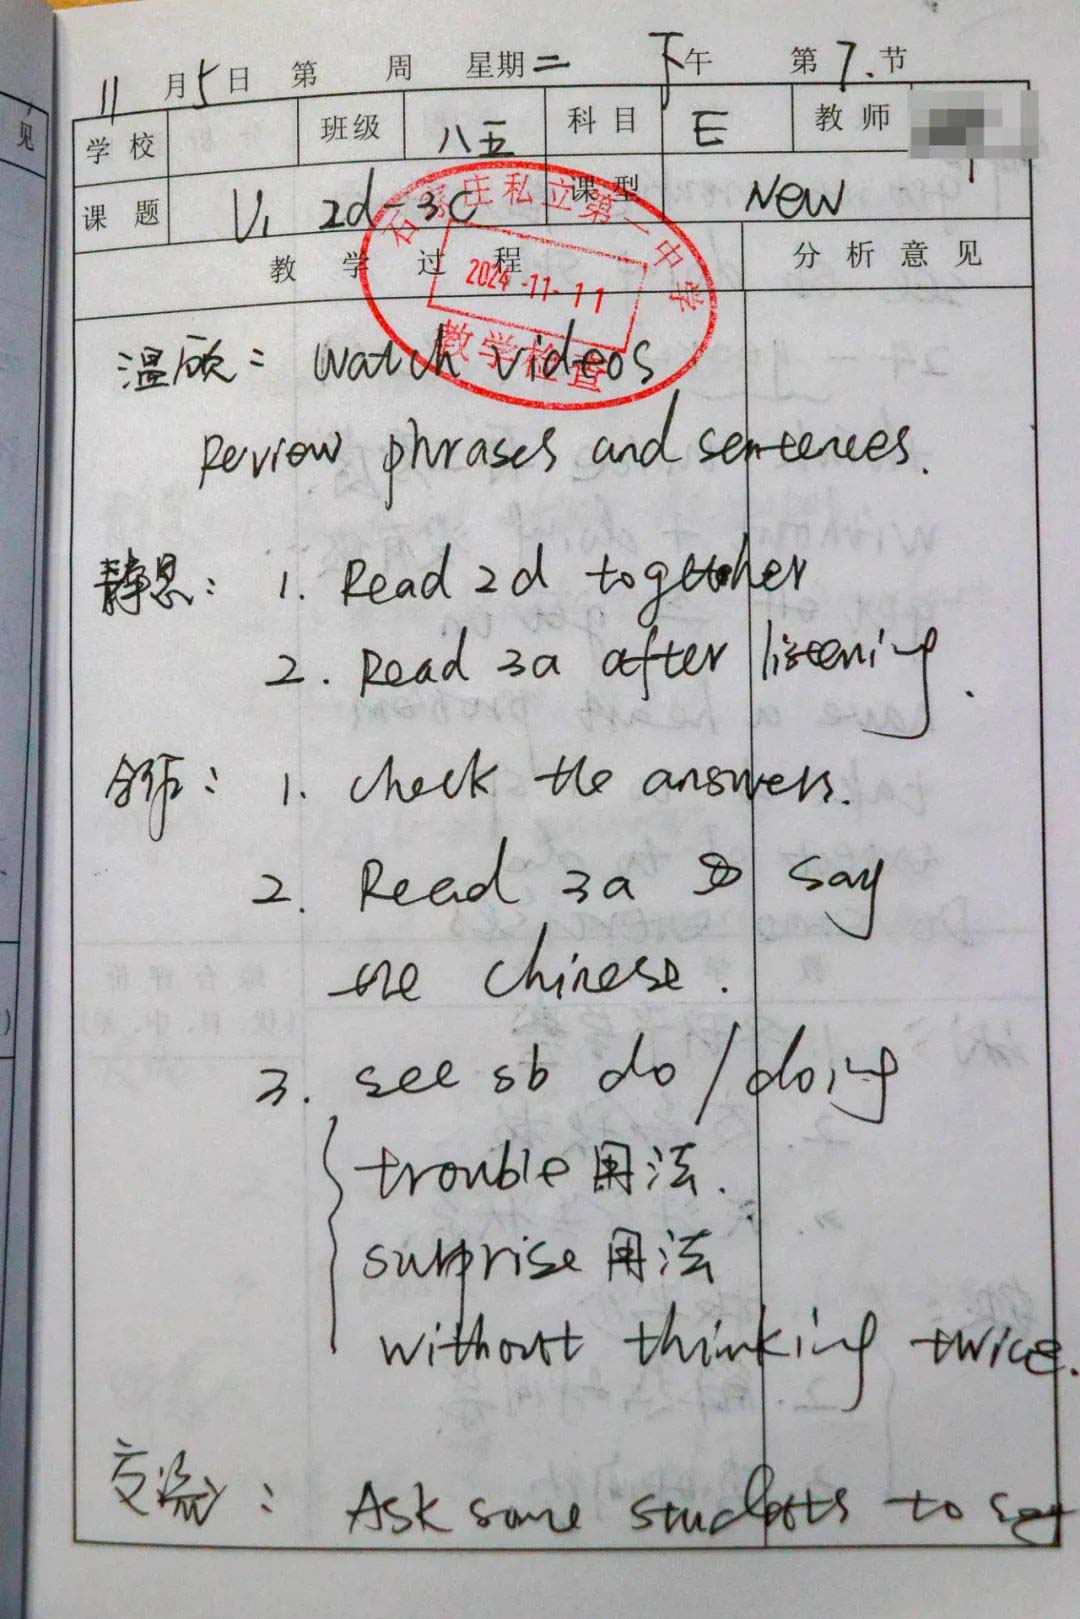 11月5日 第 周 星期二 下午 第7.节
学校 班级 八五 科目 E 教师
课题 U1 2d-3c 课型 New
教学过程 分析意见
石家庄私立第一中学
2024-11-11
教学检查
温欣: watch videos
Review phrases and sentences.
静思: 1. Read 2d together
2. Read 3a after listening.
合作: 1. check the answers.
2. Read 3a & say
the Chinese.
3. see sb do/doing
trouble用法.
surprise用法
without thinking twice.
交流: Ask some students to say
见